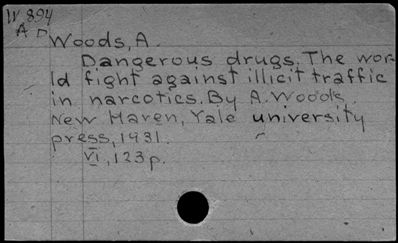 W 894
A D
Woods, A.
Dangerous drugs. The wor-
ld fight against illicit traffic
in narcotics. By A. Woods.
New Haven, Yale university
press, 1931.
VI, 123 p.